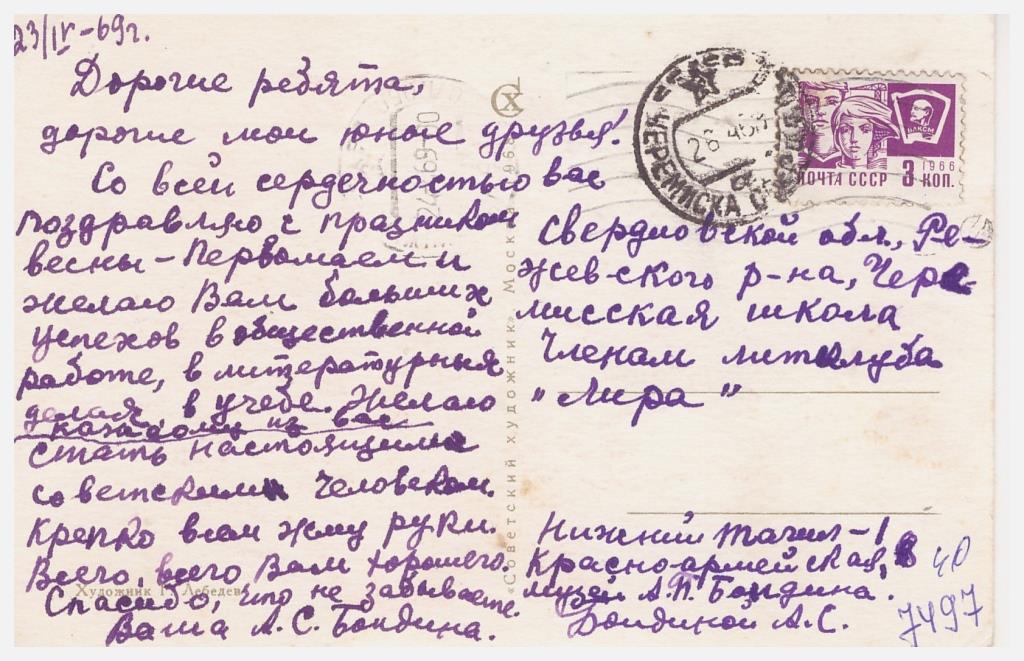 23/IV-69г.
Дорогие ребята,
дорогие мои юные друзья!
Со всей сердечностью вас
поздравляю с праздником
весны - Первомаем и
желаю Вам больших
успехов в общественной
работе, в литературных
делах, в учебе. Желаю
каждому из вас
стать настоящим
советским человеком.
Крепко всем жму руки.
Всего, всего Вам хорошего.
Спасибо, что не забываете.
Ваша А.С. Бондина.
Художник Г. Лебедев
«Советский художник» Москва
СХ
ЧЕРЕМИССКА
ВЛКСМ
1966
ПОЧТА СССР 3 КОП.
Свердловской обл., Ре-
жевского р-на, Чере
мисская школа
Членам литклуба
"Лира"
Нижний Тагил-1
Красноармейская, 8
музей А.П. Бондина.
Бондиной А.С.
40
7497